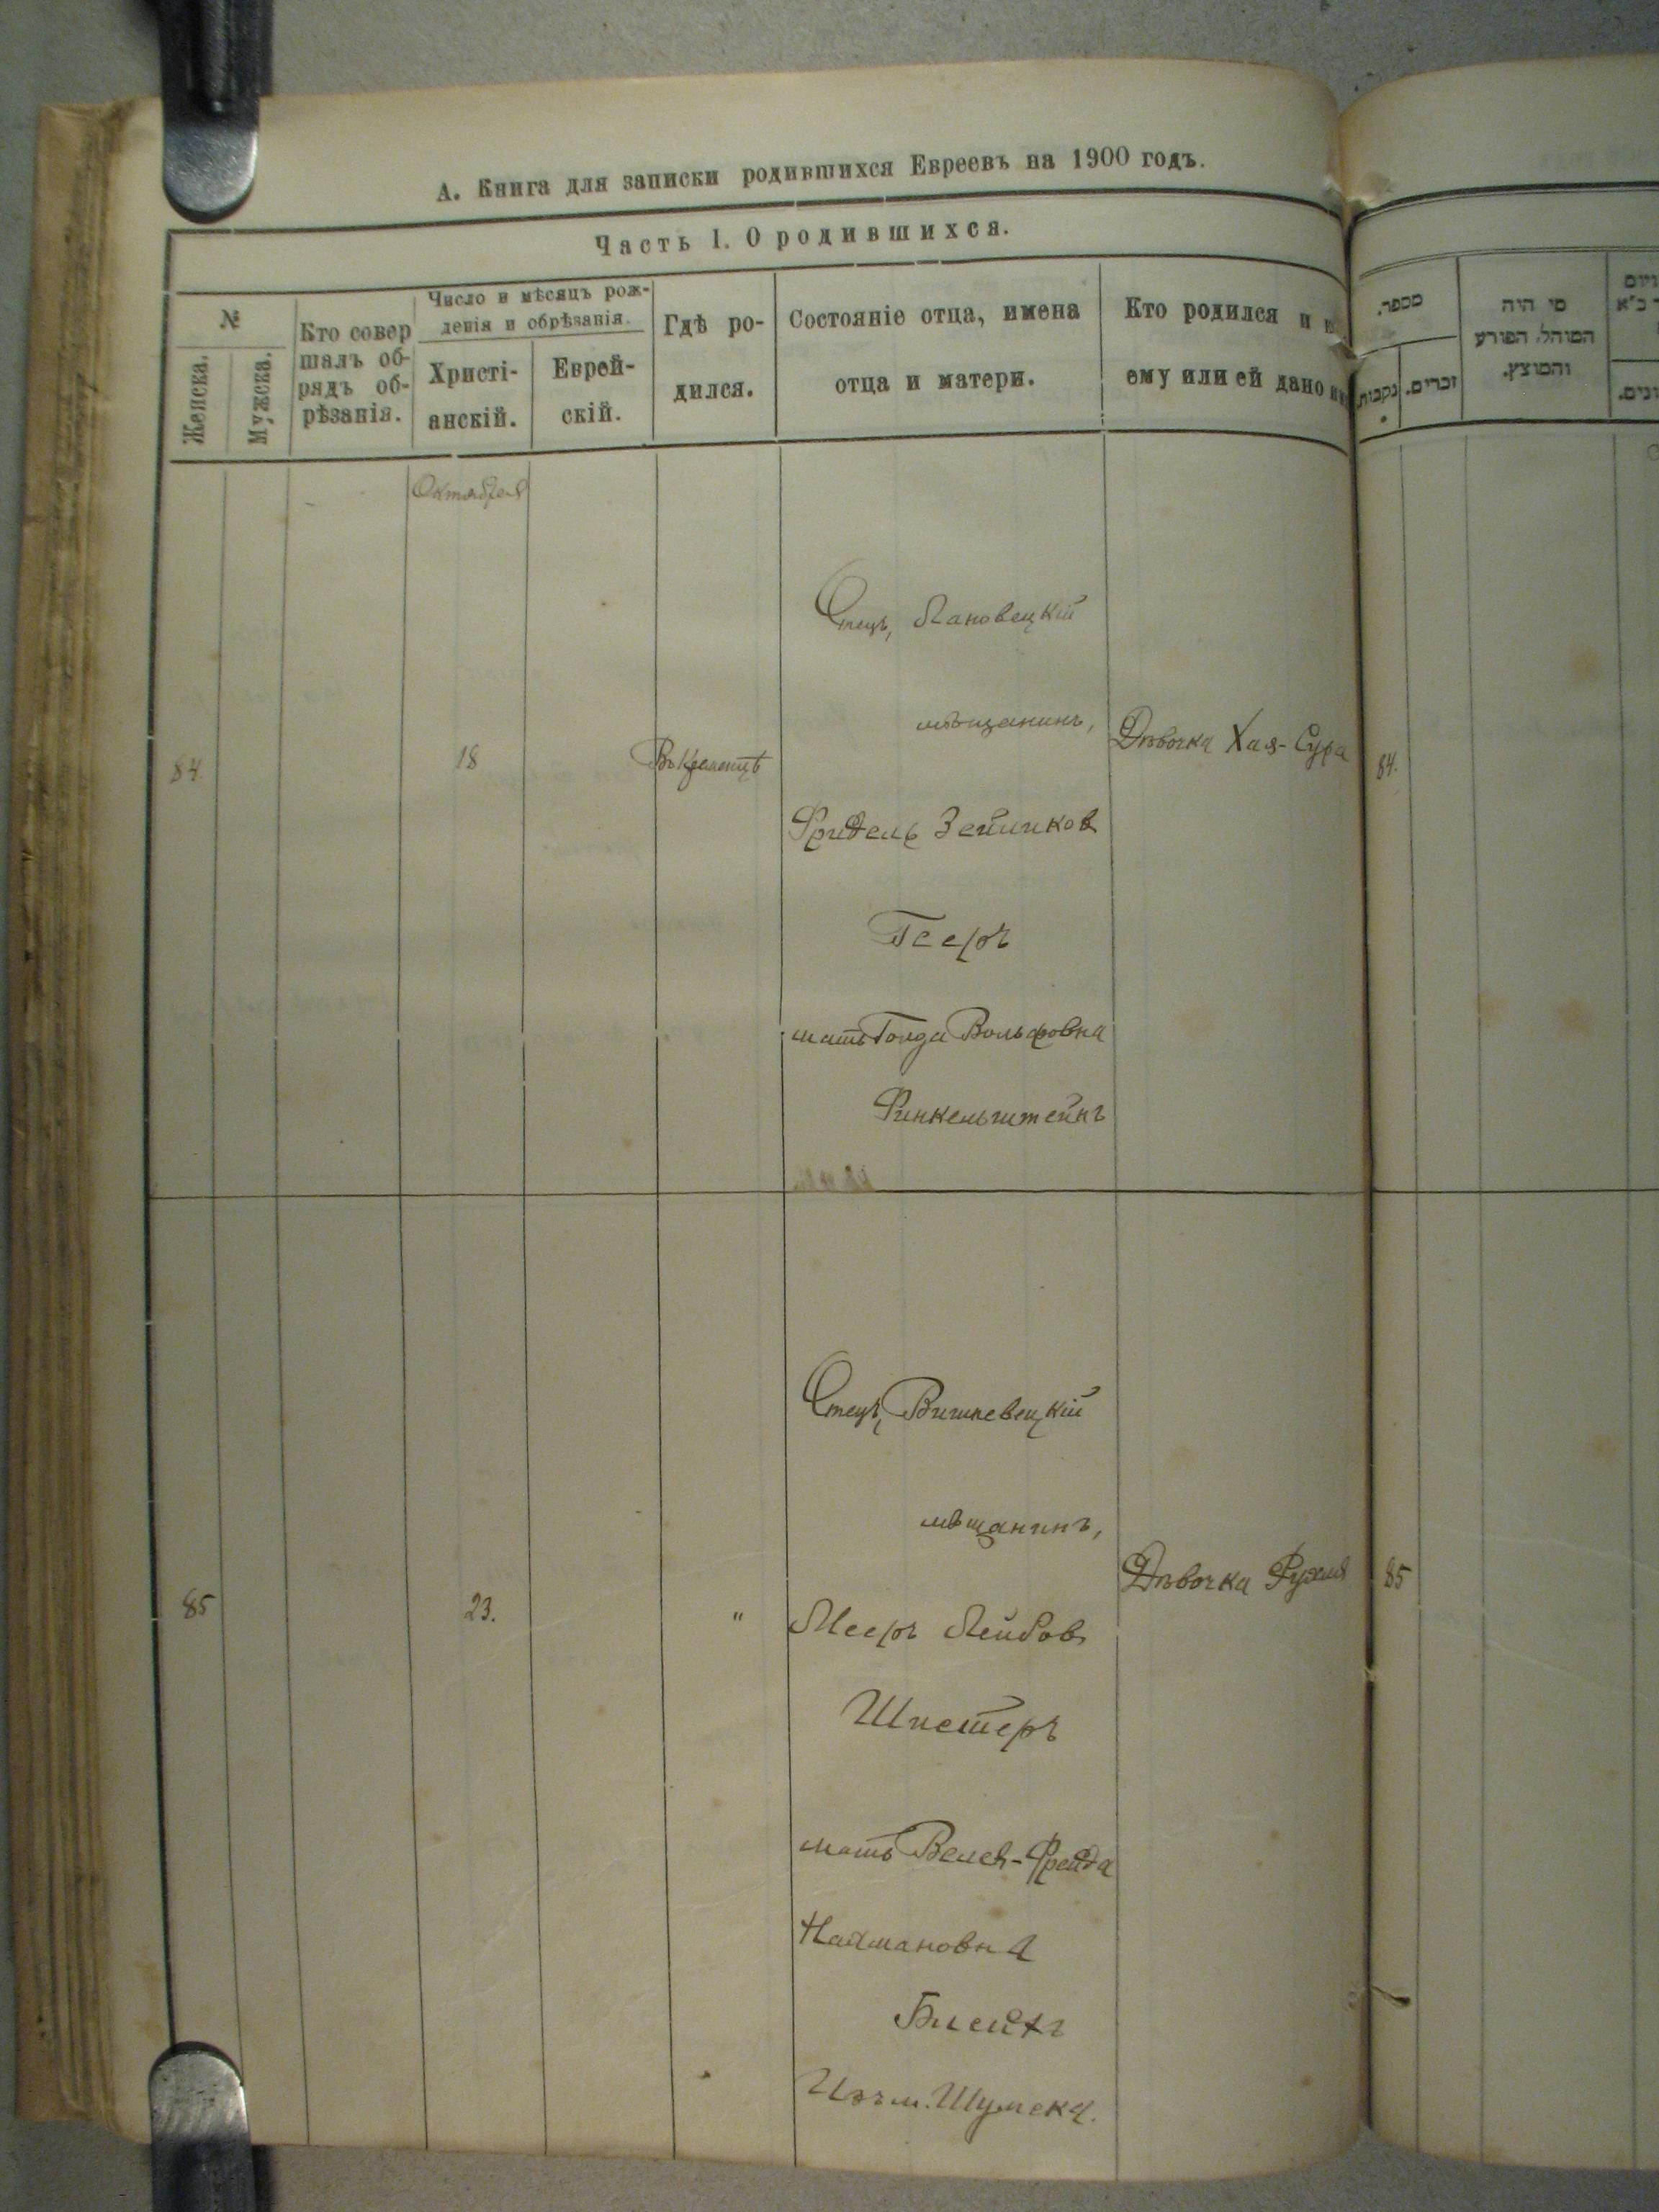 А. Книга для записки родившихся Евреевъ на 1900 годъ.
Часть I. О родившихся.
№
Женска.
Мужска.
Кто совер
шалъ об-
рядъ об-
рѣзанія.
Число и мѣсяцъ рож-
денія и обрѣзанія.
Христі-
анскій.
Еврей-
скій.
Гдѣ ро-
дился.
Состояніе отца, имена
отца и матери.
Кто родился и
ему или ей дано
מספר.
נקבות.
זכרים.
מי היה
המוהל הפורע
והמוצץ.
Октября
84.
18
Въ Кременцѣ
Отецъ, Лановецкій
мѣщанинъ,
Фридель Зейликов
Гееръ
мать Голда Вольфовна
Финкельштейнъ
Дѣвочка Хая-Сура
84.
85
23.
"
Отецъ, Вишневецкій
мѣщанинъ,
Мееръ Лейбов
Шпетеръ
мать Фрейда
Нахмановна
Блейхъ
Изъ м. Шумска.
Дѣвочка Рухля
85